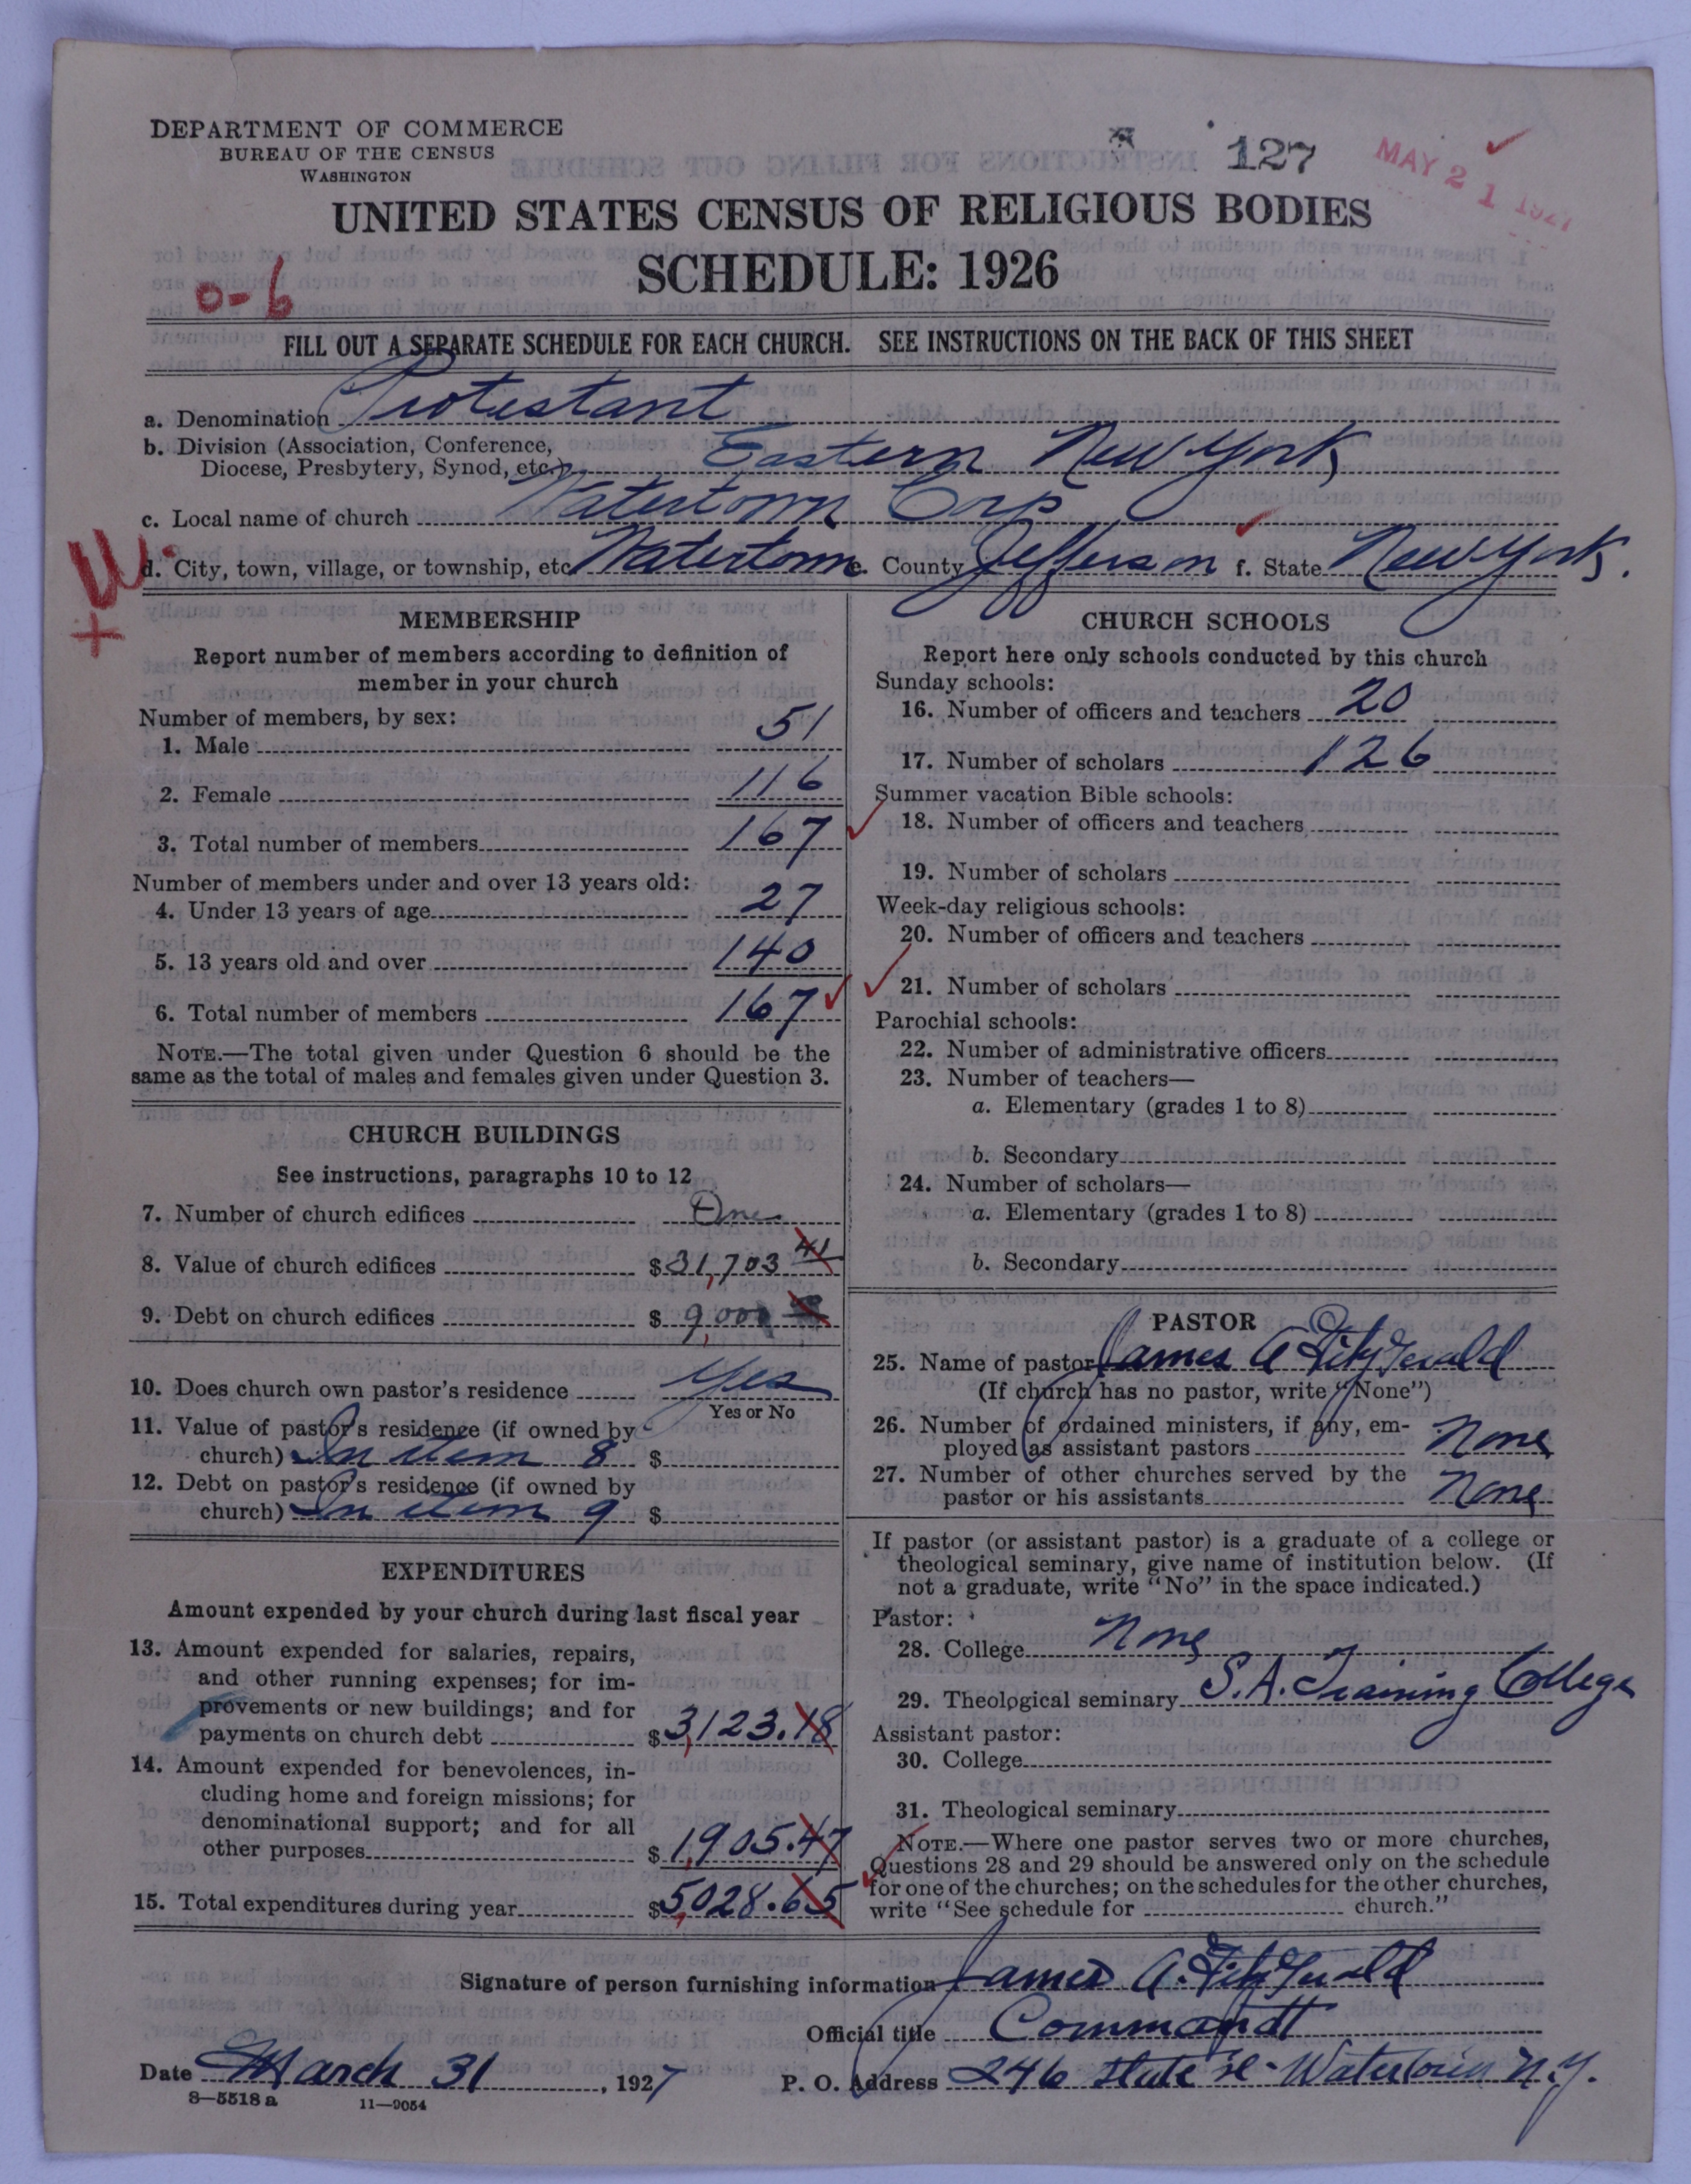 DEPARTMENT OF COMMERCE
BUREAU OF THE CENSUS
WASHINGTON
127
MAY 21 1927
UNITED STATES CENSUS OF RELIGIOUS BODIES
SCHEDULE: 1926
0-6
FILL OUT A SEPARATE SCHEDULE FOR EACH CHURCH. SEE INSTRUCTIONS ON THE BACK OF THIS SHEET
a. Denomination Protestant
b. Division (Association, Conference,
Diocese, Presbytery, Synod, etc.) Eastern New York
c. Local name of church Watertown Corp
d. City, town, village, or township, etc. Watertown e. County Jefferson f. State New York.
MEMBERSHIP
Report number of members according to definition of
member in your church
Number of members, by sex:
1. Male 51
2. Female 116
3. Total number of members 167
Number of members under and over 13 years old:
4. Under 13 years of age 27
5. 13 years old and over 140
6. Total number of members 167
NOTE.—The total given under Question 6 should be the
same as the total of males and females given under Question 3.
CHURCH BUILDINGS
See instructions, paragraphs 10 to 12
7. Number of church edifices One
8. Value of church edifices $31,703 41
9. Debt on church edifices $ 9,000
10. Does church own pastor's residence Yes
Yes or No
11. Value of pastor's residence (if owned by
church) In item 8 $
12. Debt on pastor's residence (if owned by
church) In item 9 $
EXPENDITURES
Amount expended by your church during last fiscal year
13. Amount expended for salaries, repairs,
and other running expenses; for im-
provements or new buildings; and for
payments on church debt $3,123.18
14. Amount expended for benevolences, in-
cluding home and foreign missions; for
denominational support; and for all
other purposes $1,905.47
15. Total expenditures during year $5,028.65
CHURCH SCHOOLS
Report here only schools conducted by this church
Sunday schools:
16. Number of officers and teachers 20
17. Number of scholars 126
Summer vacation Bible schools:
18. Number of officers and teachers
19. Number of scholars
Week-day religious schools:
20. Number of officers and teachers
21. Number of scholars
Parochial schools:
22. Number of administrative officers
23. Number of teachers—
a. Elementary (grades 1 to 8)
b. Secondary
24. Number of scholars—
a. Elementary (grades 1 to 8)
b. Secondary
PASTOR
25. Name of pastor James A FitzGerald
(If church has no pastor, write "None")
26. Number of ordained ministers, if any, em-
ployed as assistant pastors None
27. Number of other churches served by the
pastor or his assistants None
If pastor (or assistant pastor) is a graduate of a college or
theological seminary, give name of institution below. (If
not a graduate, write "No" in the space indicated.)
Pastor:
28. College None
29. Theological seminary S.A. Training College
Assistant pastor:
30. College
31. Theological seminary
NOTE.—Where one pastor serves two or more churches,
Questions 28 and 29 should be answered only on the schedule
for one of the churches; on the schedules for the other churches,
write "See schedule for church."
Signature of person furnishing information James A. FitzGerald
Official title Commandt
Date March 31, 1927 P. O. Address 246 State St- Watertown N.Y.
8—5518 a 11—9054